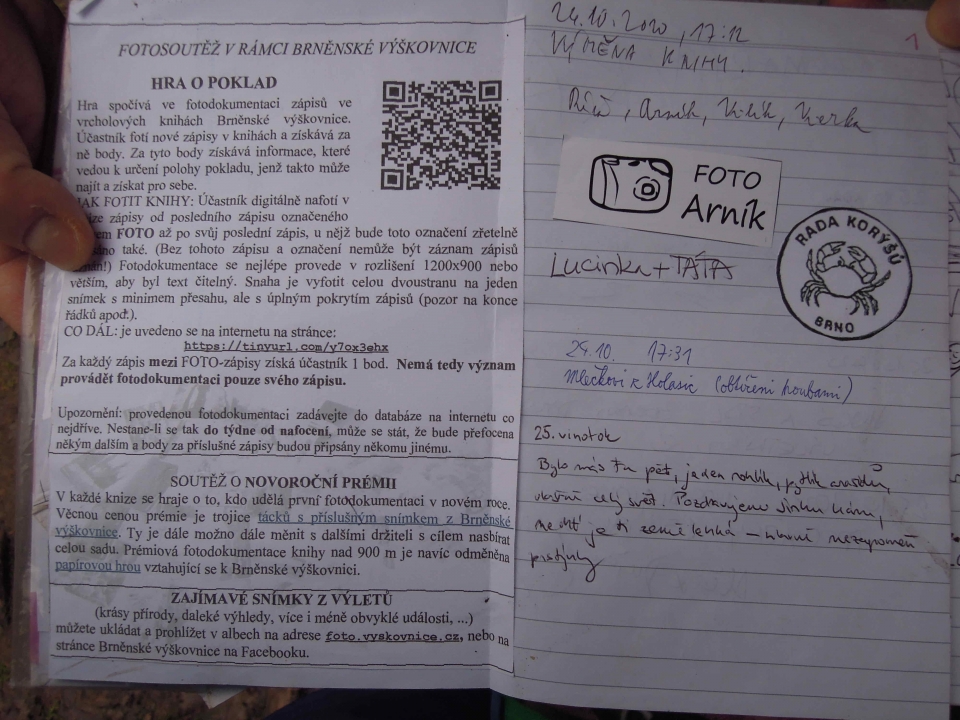 FOTOSOUTĚŽ V RÁMCI BRNĚNSKÉ VÝŠKOVNICE
HRA O POKLAD
Hra spočívá ve fotodokumentaci zápisů ve
vrcholových knihách Brněnské výškovnice.
Účastník fotí nové zápisy v knihách a získává za
ně body. Za tyto body získává informace, které
vedou k určení polohy pokladu, jenž takto může
najít a získat pro sebe.
JAK FOTIT KNIHY: Účastník digitálně nafotí v
zápisy od posledního zápisu označeného
FOTO až po svůj poslední zápis, u nějž bude toto označení zřetelně
také. (Bez tohoto zápisu a označení nemůže být záznam zápisů
Fotodokumentace se nejlépe provede v rozlišení 1200x900 nebo
větším, aby byl text čitelný. Snaha je vyfotit celou dvoustranu na jeden
snímek s minimem přesahu, ale s úplným pokrytím zápisů (pozor na konce
řádků apod.).
CO DÁL: je uvedeno se na internetu na stránce:
https://tinyurl.com/y7ox3ehx
Za každý zápis mezi FOTO-zápisy získá účastník 1 bod. Nemá tedy význam
provádět fotodokumentaci pouze svého zápisu.
Upozornění: provedenou fotodokumentaci zadávejte do databáze na internetu co
nejdříve. Nestane-li se tak do týdne od nafocení, může se stát, že bude přefocena
někým dalším a body za příslušné zápisy budou připsány někomu jinému.
SOUTĚŽ O NOVOROČNÍ PRÉMII
V každé knize se hraje o to, kdo udělá první fotodokumentaci v novém roce.
Věcnou cenou prémie je trojice tácků s příslušným snímkem z Brněnské
výškovnice. Ty je dále možno dále měnit s dalšími držiteli s cílem nasbírat
celou sadu. Prémiová fotodokumentace knihy nad 900 m je navíc odměněna
papírovou hrou vztahující se k Brněnské výškovnici.
ZAJÍMAVÉ SNÍMKY Z VÝLETŮ
(krásy přírody, daleké výhledy, více i méně obvyklé události, ...)
můžete ukládat a prohlížet v albech na adrese foto.vyskovnice.cz, nebo na
stránce Brněnské výškovnice na Facebooku.
1
24.10.2020, 17:12
VÝMĚNA KNIHY.
Arník,
FOTO
Arník
RADA KORÝŠŮ
BRNO
Lucinka + TÁTA
24.10. 17:31
Mlečkovi z Holasic (obtíženi houbami)
25. vinotok
Bylo nás tu pět, jeden rohlík, pytlík
celý svět. Pozdravujeme
je ti země lehká – nezapomeň